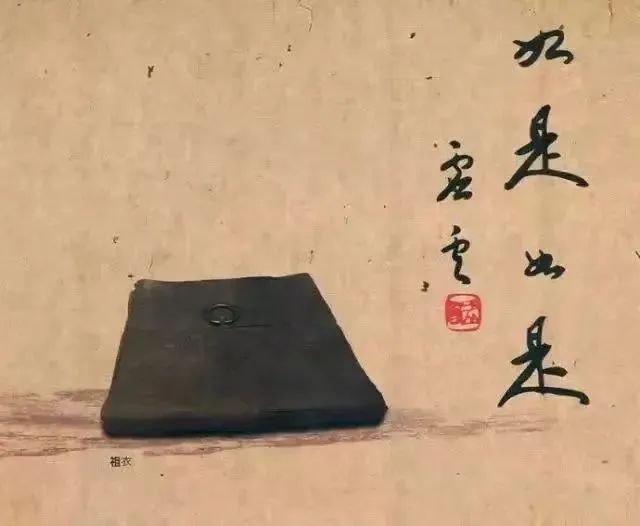 如是如是
虚云
祖衣